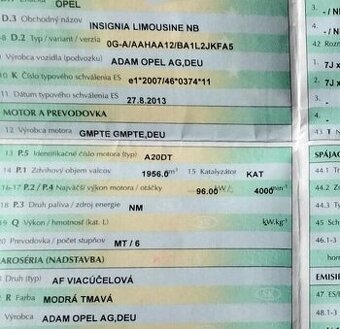 OPEL
D.3 Obchodný názov
INSIGNIA LIMOUSINE NB
D.2 Typ / variant / verzia
0G-A/AAHAA12/BA1L2JKFA5
Výrobca vozidla (podvozku)
ADAM OPEL AG,DEU
10 K Číslo typového schválenia ES
e1*2007/46*0374*11
11. Dátum typového schválenia ES
27.8.2013
MOTOR A PREVODOVKA
12 Výrobca motora
GMPTE GMPTE,DEU
13 P.5 Identifikačné číslo motora (typ)
A20DT
14 P.1 Zdvihový objem valcov
1956.0 m³
15 Katalyzátor
KAT
16-17 P.2 / P.4 Najväčší výkon motora / otáčky
96.00 kW/
4000 min⁻¹
18 P.3 Druh paliva / zdroj energie
NM
19 Q Výkon / hmotnosť (kat. L)
kW.kg⁻¹
20 Prevodovka / počet stupňov
MT / 6
KAROSÉRIA (NADSTAVBA)
Druh (typ)
AF VIACÚČELOVÁ
R Farba
MODRÁ TMAVÁ
Výrobca
ADAM OPEL AG,DEU
SK
3.
- / N
4.
- / N
42 Rozn
1.
7J x
2.
7J x
3.
4.
43 T
SPÁJAC
44.1
44.2
44.3
45
46.1-3
46.1-3
EMISIE
47
48